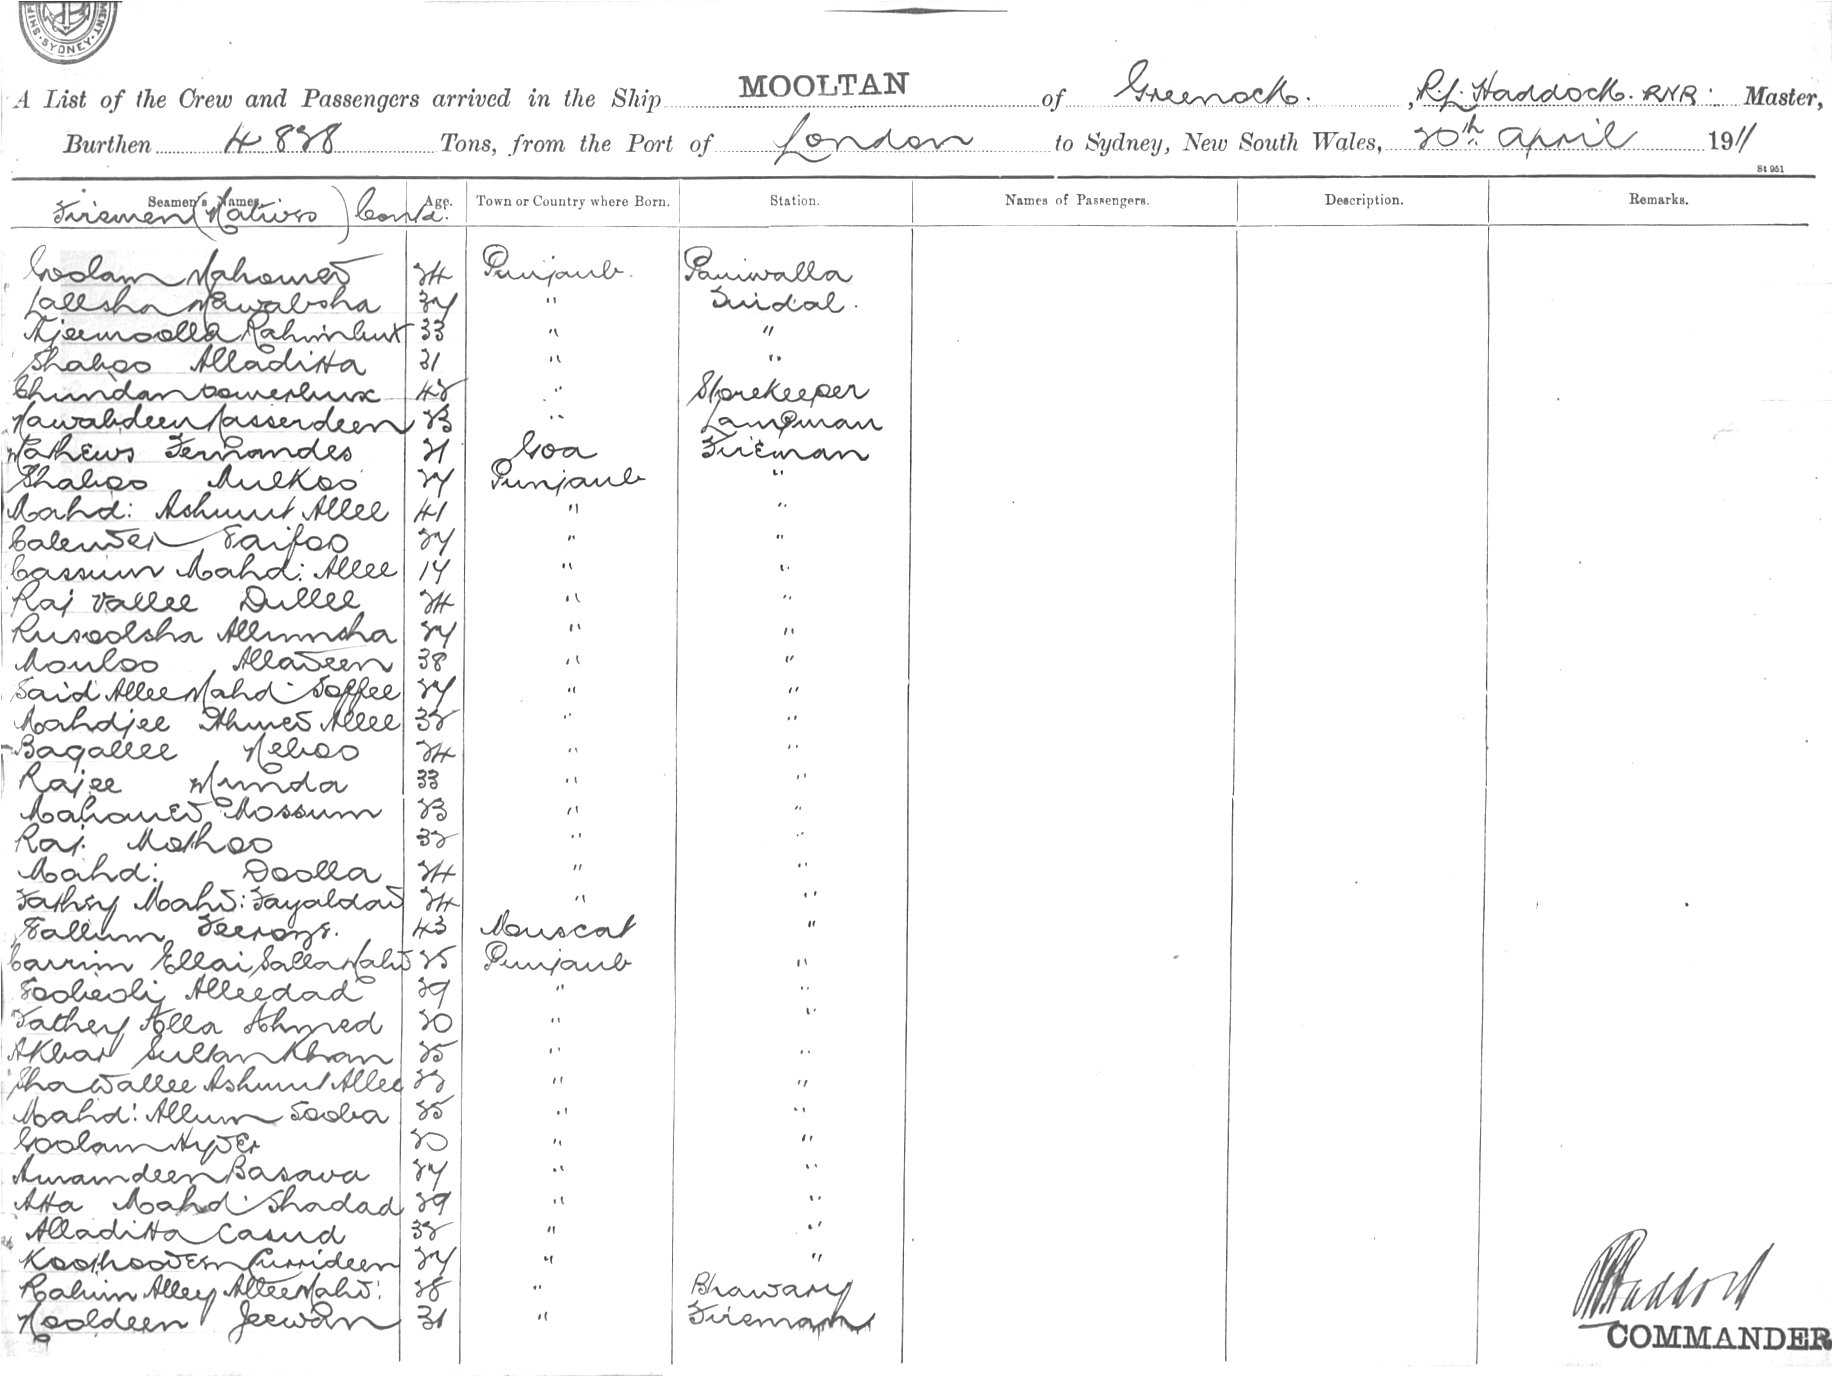 SYDNEY
A List of the Crew and Passengers arrived in the Ship MOOLTAN of Greenock. , R.L. Haddock. RNR. Master,
Burthen 4828 Tons, from the Port of London to Sydney, New South Wales, 20th April 1911
St 951
Seamen's Names. Age. Town or Country where Born. Station. Names of Passengers. Description. Remarks.
Firemen (Natives) Contd.
Goolam Mahomed 24 Punjaub. Paniwalla
Lallsha Nawabsha 37 " Tindal.
Ajeemoolla Rahimbux 33 " "
Shaboo Alladitta 31 " "
Chundan 42 " Storekeeper
Nawabdeen Nasserdeen 23 " Lampman
Mathews Fernandes 21 Goa Fireman
Shaboo Mulkoo 27 Punjaub "
Mahd: Ashmut Allee 41 " "
Calender Saifoo 27 " "
Cassum Mahd: Allee 17 " "
Raj Vallee Dullee 24 " "
Rusoolsha Allumsha 27 " "
Mouloo Alladeen 38 " "
Said Allee Mahd: Soffee 27 " "
Mahdjee Ahmed Allee 32 " "
Bagallee Neboo 24 " "
Rajee Munda 33 " "
Mahomed Mossum 23 " "
Raj. Mothoo 32 " "
Mahd: Doolla 24 " "
Mahd: 24 " "
Sallum Feeroze. 43 Muscat "
Carrim Ellai Salla Mahd 25 Punjaub "
Alleedad 29 " "
Fathey Alla Ahmed 20 " "
Akbar Sultan Khan 25 " "
Sha Wallee Ashmut Allee 22 " "
Mahd: Allum Sooba 25 " "
Goolam Hyder 20 " "
Amamdeen Basava 27 " "
Atta Mahd: Shadad 29 " "
Alladitta Casud 32 " "
27 " "
Rahim Alley Allee Mahd: 28 " Bhawary
Nooldeen Jeewan 31 " Fireman
R L Haddock
COMMANDER